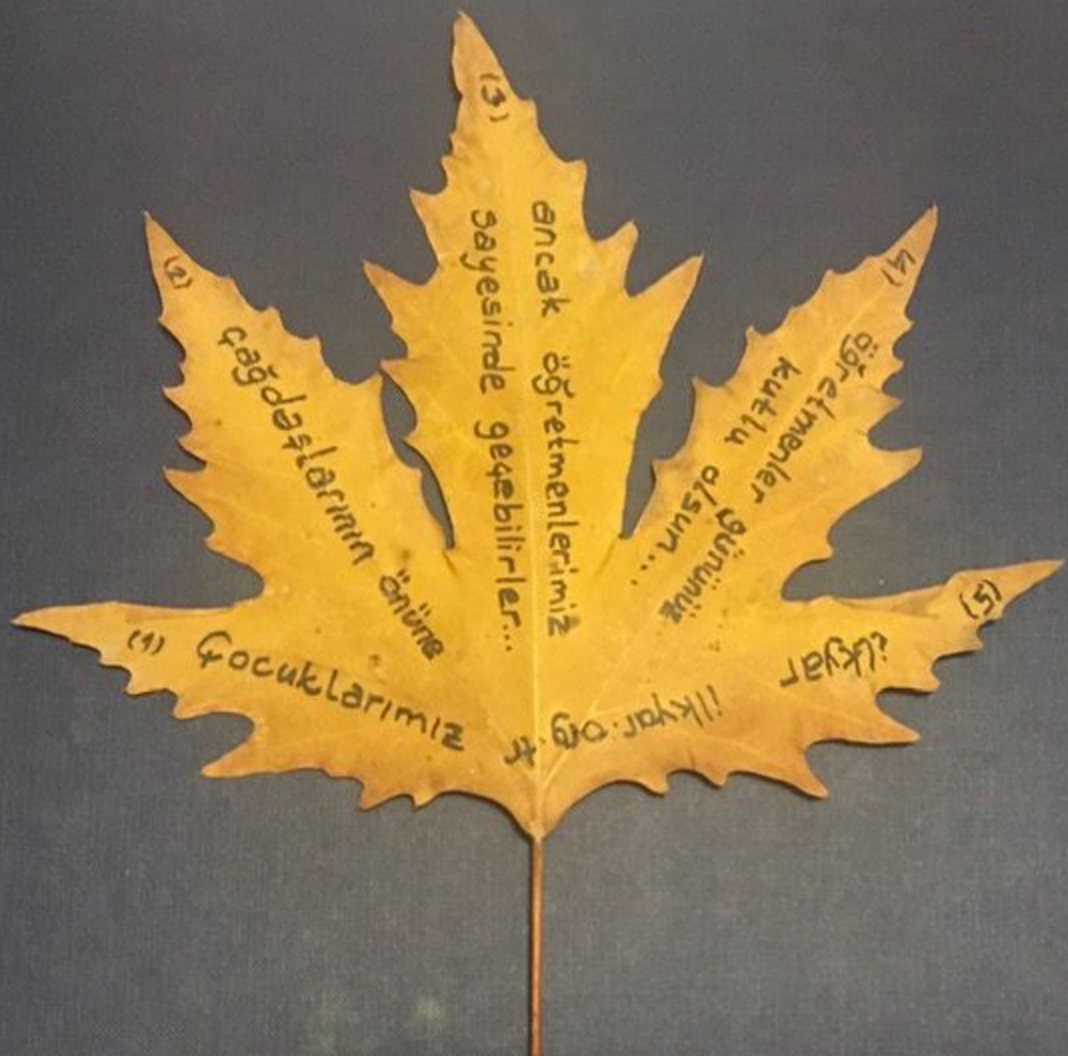 (1) Çocuklarımız
(2)
çağdaşlarının önüne
(3)
ancak öğretmenlerimiz
sayesinde geçebilirler...
(4)
öğretmenler gününüz
kutlu olsun....
(5)
ilkyar
ilkyar.org.tr